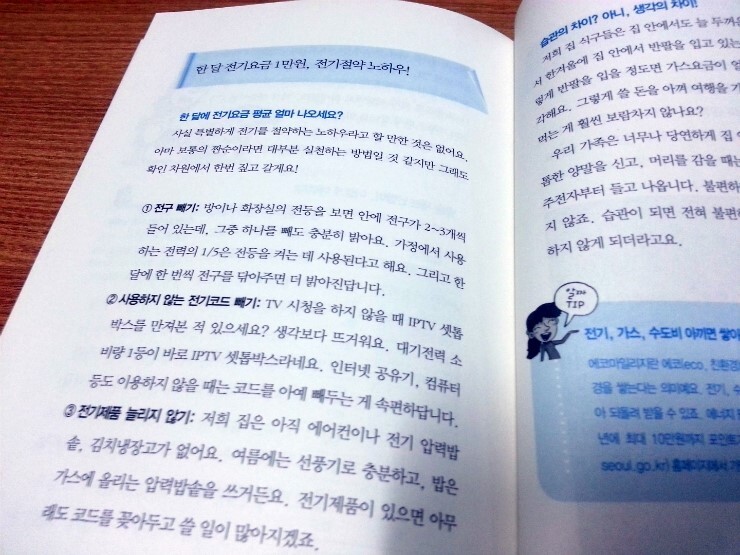 한 달 전기요금 1만원, 전기절약 노하우!
한 달에 전기요금 평균 얼마 나오세요?
사실 특별하게 전기를 절약하는 노하우라고 할 만한 것은 없어요.
아마 보통의 판순이라면 대부분 실천하는 방법일 것 같지만 그래도
확인 차원에서 한번 짚고 갈게요!
① 전구 빼기: 방이나 화장실의 전등을 보면 안에 전구가 2~3개씩
들어 있는데, 그중 하나를 빼도 충분히 밝아요. 가정에서 사용
하는 전력의 1/5은 전등을 켜는 데 사용된다고 해요. 그리고 한
달에 한 번씩 전구를 닦아주면 더 밝아진답니다.
② 사용하지 않는 전기코드 빼기: TV 시청을 하지 않을 때 IPTV 셋톱
박스를 만져본 적 있으세요? 생각보다 뜨거워요. 대기전력 소
비량 1등이 바로 IPTV 셋톱박스라네요. 인터넷 공유기, 컴퓨터
등도 이용하지 않을 때는 코드를 아예 빼두는 게 속편하답니다.
③ 전기제품 늘리지 않기: 저희 집은 아직 에어컨이나 전기 압력밥
솥, 김치냉장고가 없어요. 여름에는 선풍기로 충분하고, 밥은
가스에 올리는 압력밥솥을 쓰거든요. 전기제품이 있으면 아무
래도 코드를 꽂아두고 쓸 일이 많아지겠죠.
습관의 차이? 아니, 생각의 차이!
저희 집 식구들은 집 안에서도 늘 두꺼운
서 한겨울에 집 안에서 반팔을 입고 있는
렇게 반팔을 입을 정도면 가스요금이 얼
각해요. 그렇게 쓸 돈을 아껴 여행을 가
먹는 게 훨씬 보람차지 않나요?
우리 가족은 너무나 당연하게 집 
톰한 양말을 신고, 머리를 감을 때는
주전자부터 들고 나옵니다. 불편하
지 않죠. 습관이 되면 전혀 불편
하지 않게 되더라고요.
알짜
TIP
전기, 가스, 수도비 아끼면 쌓이
에코마일리지란 에코eco, 친환경
경을 쌓는다는 의미예요. 전기, 수
아 되돌려 받을 수 있죠. 에너지
년에 최대 10만원까지 포인트
seoul.go.kr) 홈페이지에서 가